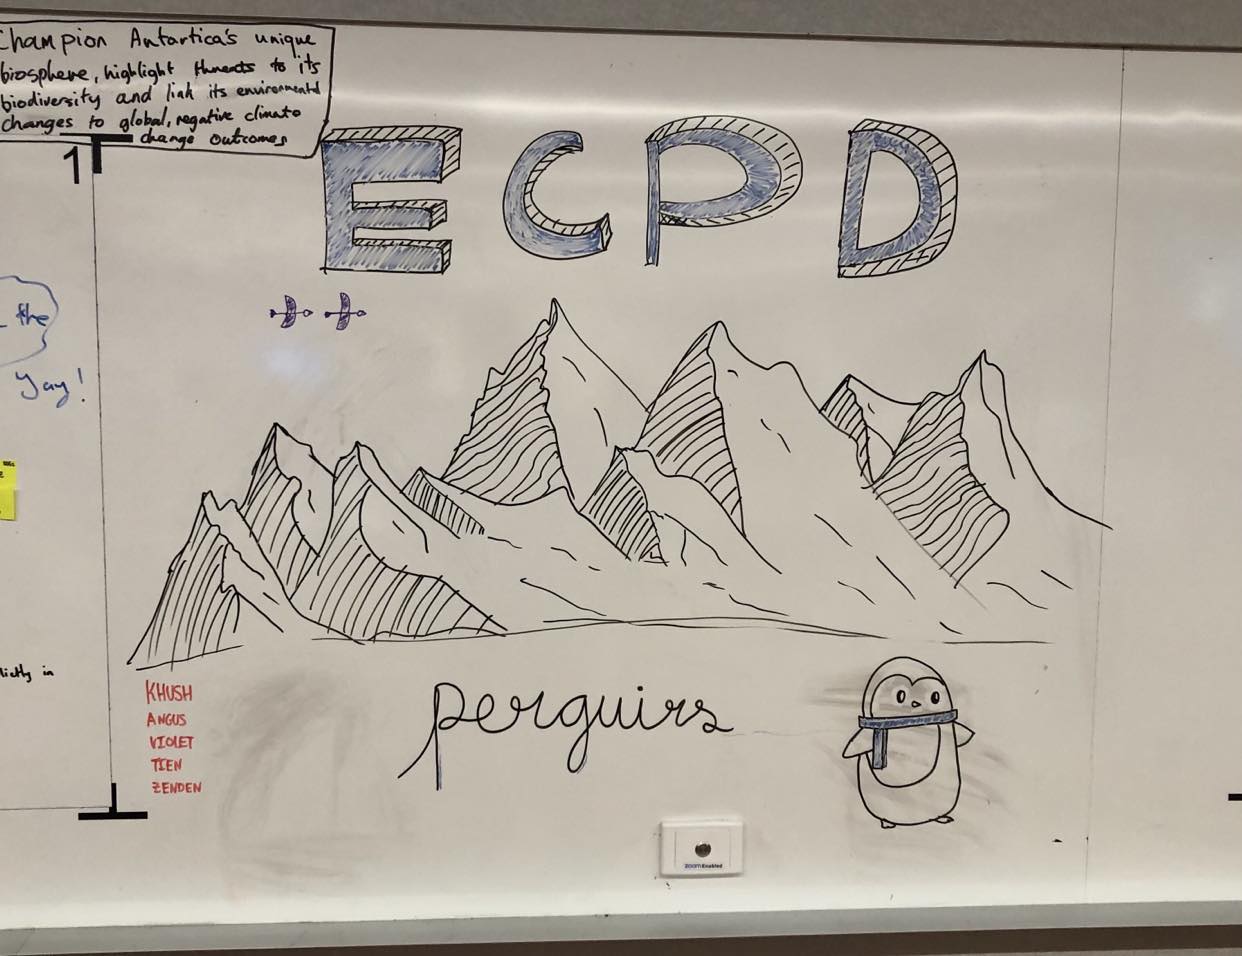 Champion Antartica's unique
biosphere, highlight threats to its
biodiversity and link its environmental
changes to global, negative climate
change outcomes
1
ECPD
the
Yay!
in
KHUSH
ANGUS
VIOLET
TIEN
ZENDEN
penguins
zoom Enabled